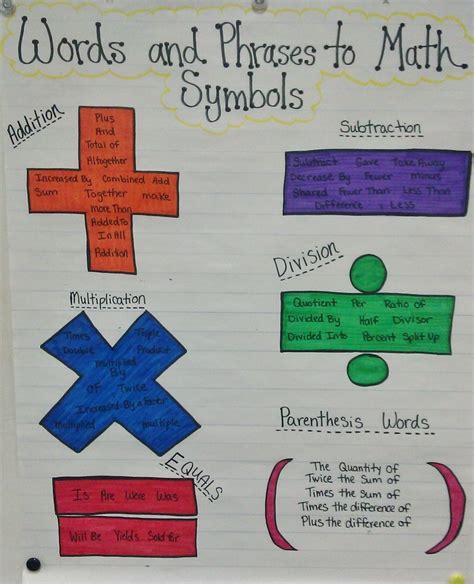 Words and Phrases to Math
Symbols
Addition
Plus
And
Total of
Altogether
Increased By Combined Add
Sum Together make
more Than
Added To
In All
Addition
Subtraction
Subtract Gave Take Away
Decrease By Fewer minus
Shared Fewer Than Less Than
Difference Less
Multiplication
Times Triple
Double Product
Multiplied
By
OF Twice
Increased By a Factor
Multiplied Multiple
Division
Quotient Per Ratio of
Divided By Half Divisor
Divided Into Percent Split Up
EQUALS
Is Are Were Was
Will Be Yields Sold for
Parenthesis Words
The Quantity of
Twice the Sum of
Times the Sum of
Times the difference of
Plus the difference of